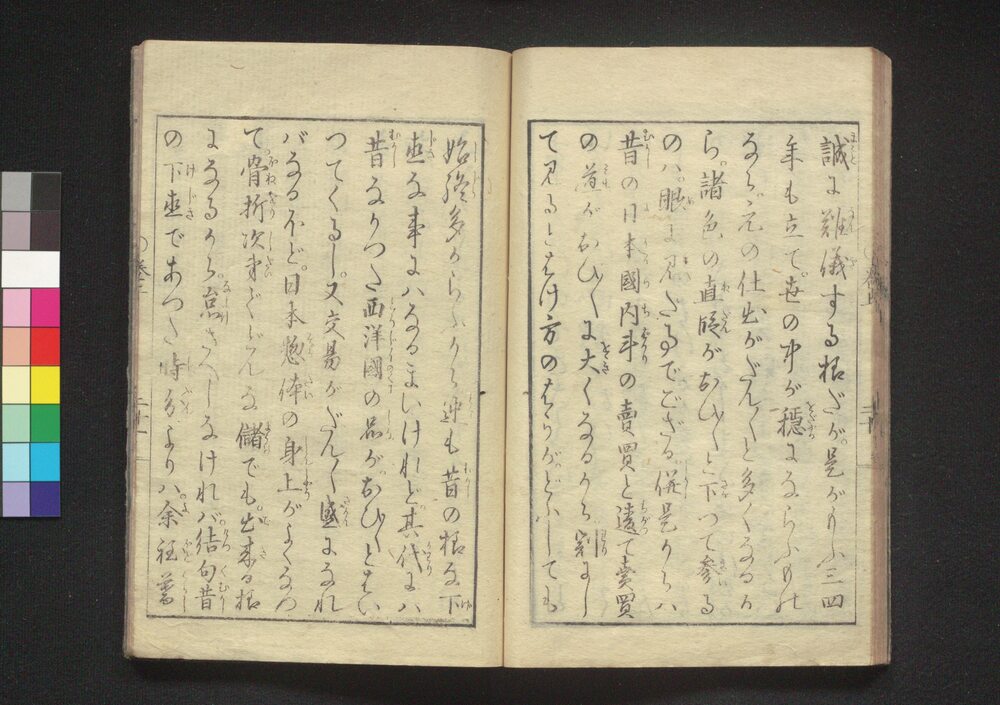 誠に難儀する様だが。是がもふ三四
年も立て。世の中が穏にならふものなら
なら。元の仕出がだん〳〵と多くなるから
ら。諸色の直段がおひ〳〵と下つて参る
のハ。眼に見た事でござる。併是からハ
昔の日本國内斗の賣買と違て賣買
の道がおひ〳〵に大くなるから割にし
て見るとはけ方のはうがどふしても
始終多からふから迚も昔の様な下
直な事にハなるまいけれど。其代にハ
昔なかつた西洋國の品が。おひ〳〵とはい
つてくるし。又交易がだん〳〵盛になれ
バなるほど。日本惣体の身上がよくなつ
て。骨折次第でどんな儲でも。出来る様
になるから。怠さへしなけれバ。結句昔
の下直であつた時分よりハ。余程暮